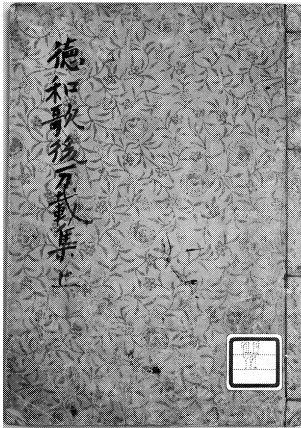 徳和歌後万載集 上